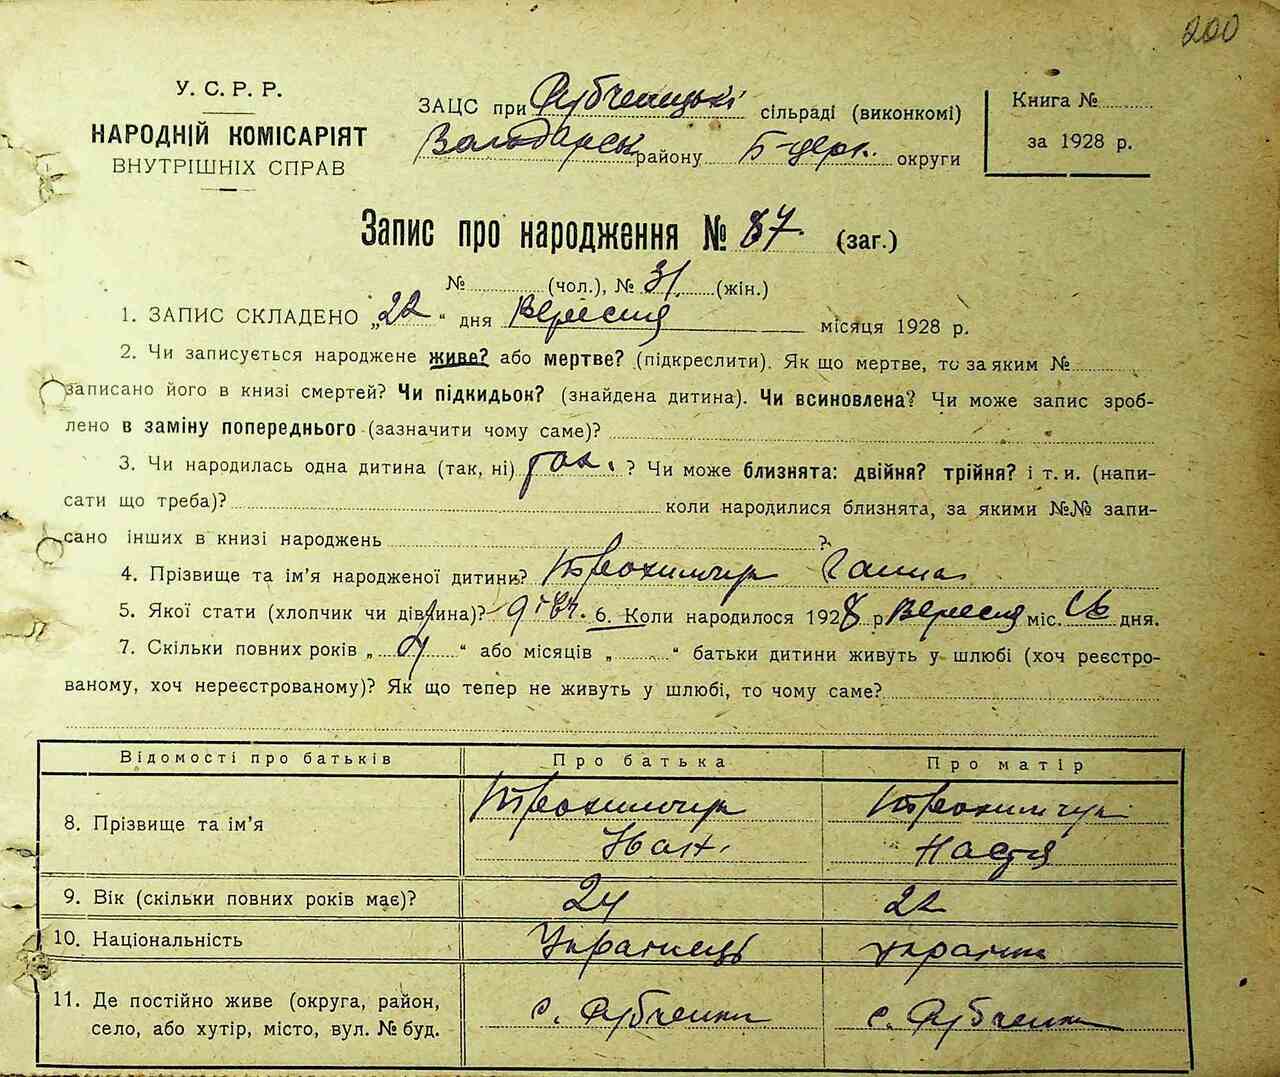 200
У. С. Р. Р.
НАРОДНІЙ КОМІСАРІЯТ
ВНУТРІШНІХ СПРАВ
ЗАЦС при сільраді (виконкомі)
Володарськ району Б-церк. округи
Книга №
за 1928 р.
Запис про народження № 87. (заг.)
№ (чол.), № 31 (жін.)
1. ЗАПИС СКЛАДЕНО „22“ дня Вересня місяця 1928 р.
2. Чи записується народжене живе? або мертве? (підкреслити). Як що мертве, то за яким №
записано його в книзі смертей? Чи підкидьок? (знайдена дитина). Чи всиновлена? Чи може запис зроб-
лено в заміну попереднього (зазначити чому саме)?
3. Чи народилась одна дитина (так, ні) так. ? Чи може близнята: двійня? трійня? і т. и. (напи-
сати що треба)? коли народилися близнята, за якими №№ запи-
сано інших в книзі народжень ?
4. Прізвище та ім’я народженої дитини? Трохимчук Ганна
5. Якої стати (хлопчик чи дівчина)? дівч. 6. Коли народилося 1928 р Вересня міс. дня.
7. Скільки повних років „ “ або місяців „ “ батьки дитини живуть у шлюбі (хоч реєстро-
ваному, хоч нереєстрованому)? Як що тепер не живуть у шлюбі, то чому саме?
Відомості про батьків Про батька Про матір
8. Прізвище та ім’я Трохимчук Іван. Трохимчук Настя
9. Вік (скільки повних років має)? 24 22
10. Національність Українець українка
11. Де постійно живе (округа, район, село, або хутір, місто, вул. № буд. с. Рубченки с. Рубченки